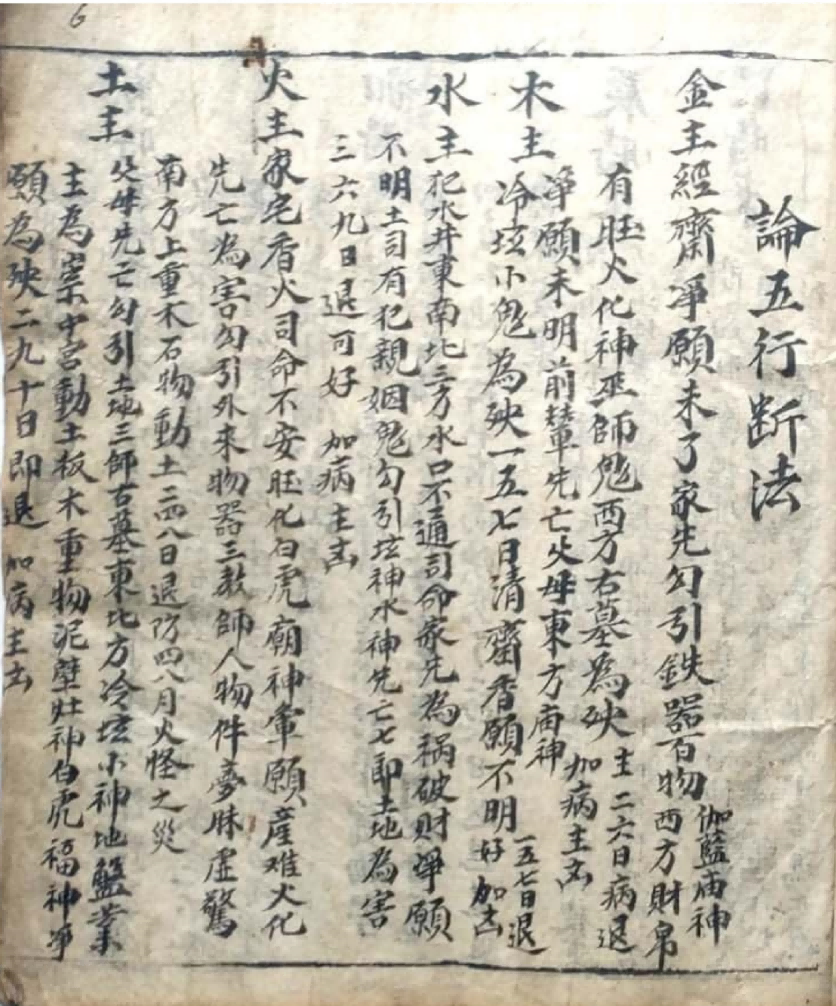 6
論五行断法
金主經齋凈願未了家先勾引鉄器百物西方財帛
伽藍庙神
有旺火化神巫師鬼西方古墓為殃主二六日病退
加病主凶
木主凈願未明前輩先亡父母東方庙神
冷坛小鬼為殃一五七日清齋香願不明
一五七日退
好加凶
水主犯水井東南北三方水口不通司命家先為祸破財凈願
不明土司有犯親姻鬼勾引坛神水神先亡七郎土地為害
三六九日退可好 加病主凶
火主家宅香火司命不安旺化白虎廟神軍願産难火化
先亡為害勾引外来物器三教師人物件夢昧虚驚
南方上重木石物動土二四八日退防四八月火怪之災
土主父母先亡勾引土地三師古墓東北方冷坛小神地盤業
主為祟中宮動土板木重物泥壁灶神白虎福神凈
願為殃二九十日即退 加病主凶